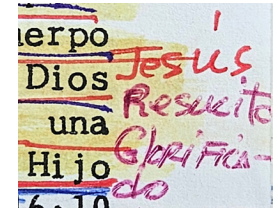 uerpo
Dios
una
Hijo
6:10
Jesús
Resucito
Glorifica-
do